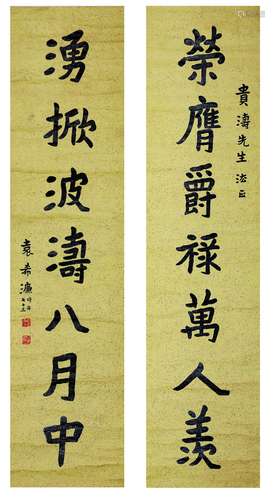 貴濤先生法正
榮膺爵祿萬人羨
湧掀波濤八月中
袁希濂